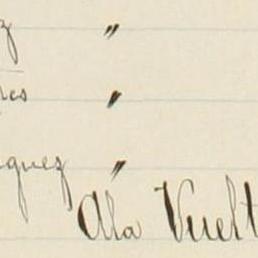 z "
res "
guez "
Ala Vuelt